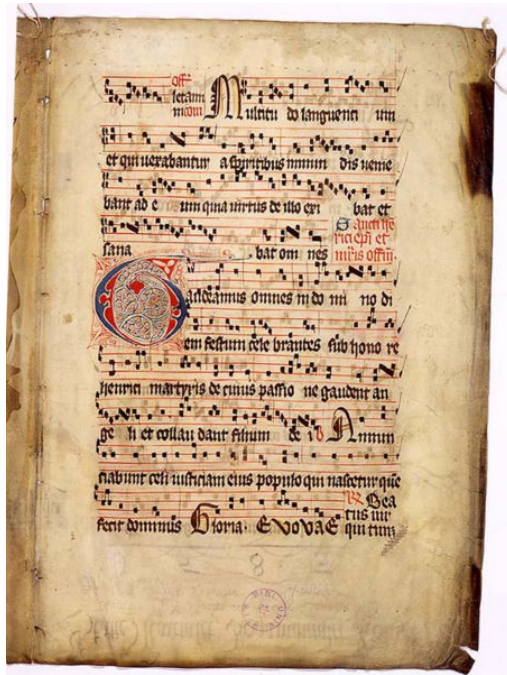 off
letam Multitu do languenci um
m com
et qui uexabantur a spiritibus inmun dis uenie
bant ad e um quia uirtus de illo exi bat et
sana bat om nes
Sancti he
rici epi et
mris offm.
Gaudeamus omnes in do mi no di
em festum cele brantes sub hono re
henrici martyris de cuius passio ne gaudent an
ge li et collau dant filium de i v Annun
ciabunt celi iusticiam eius populo qui nascetur que
fecit dominus Gloria. EVOVAE
R Bea
tus uir
qui tim